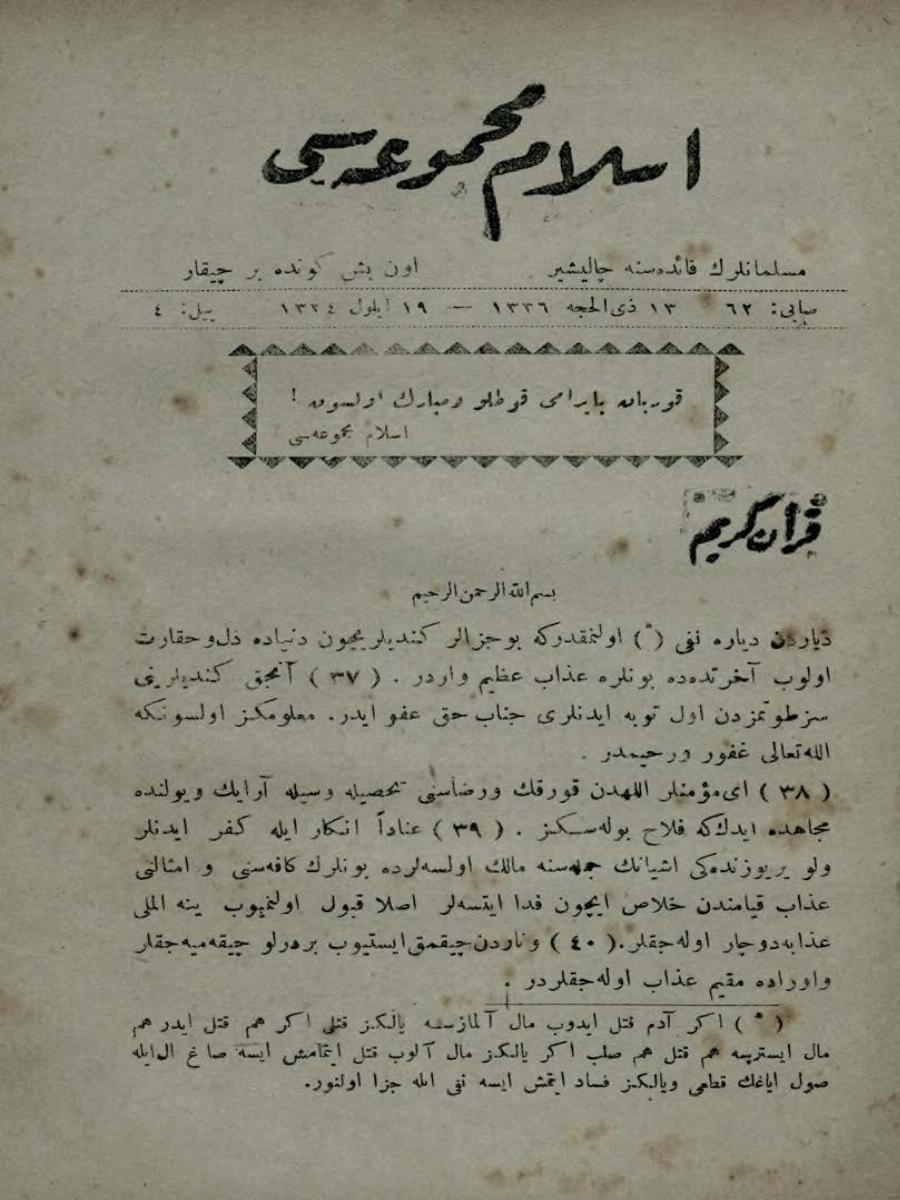 اسلام مجموعه‌سی
مسلمانلرك فائده‌سنه چالیشیر اون بش كونده بر چیقار
صایی: ٦٢ ١٣ ذی الحجه ١٣٣٦ — ١٩ ایلول ١٣٣٤ ییل: ٤
قوربان بایرامی قوطلو ومبارك اولسون !
اسلام مجموعه‌سی
قرآن كریم
بسم الله الرحمن الرحیم
دیاردن دیاره نفی (*) اولنمقدركه بوجزالر كندیلریچون دنیاده ذل وحقارت
اولوب آخرتده‌ده بونلره عذاب عظیم واردر . (٣٧) آنجق كندیلرینی
سز طوتمزدن اول توبه ایدنلری جناب حق عفو ایدر. معلومكز اولسونكه
الله تعالی غفور ورحیمدر .
(٣٨) ای مؤمنلر اللهدن قورقك ورضاسنی تحصیله وسیله آرایك ویولنده
مجاهده ایدك كه فلاح بوله‌سكز . (٣٩) عناداً انكار ایله كفر ایدنلر
ولو یریوزنده‌كی اشیانك جمله‌سنه مالك اولسه‌لرده بونلرك كافه‌سنی و امثالنی
عذاب قیامتدن خلاص ایچون فدا ایتسه‌لر اصلا قبول اولنمیوب ینه الملی
عذابه دوچار اوله‌جقلر. (٤٠) وناردن چیقمق ایستیوب بردرلو چیقه‌میه‌جقلر
واوراده مقیم عذاب اوله‌جقلردر .
(*) اكر آدم قتل ایدوب مال آلمازسه یالكز قتلی اكر هم قتل ایدر هم
مال ایسترسه هم قتل هم صلب اكر یالكز مال آلوب قتل ایتمامش ایسه صاغ ال ایله
صول ایاغك قطعی ویالكز فساد ایتمش ایسه نفی ایله جزا اولنور.